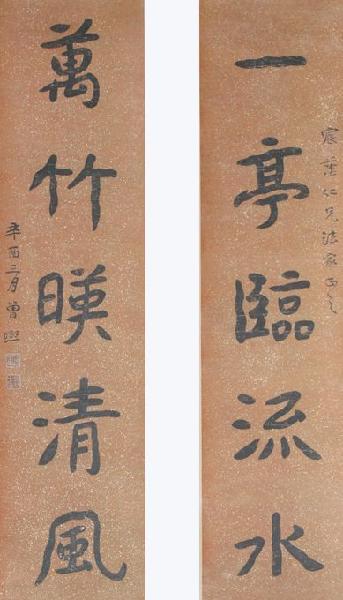 宸葉仁兄法家正之
一亭臨流水
萬竹暎清風
辛酉三月曾熙